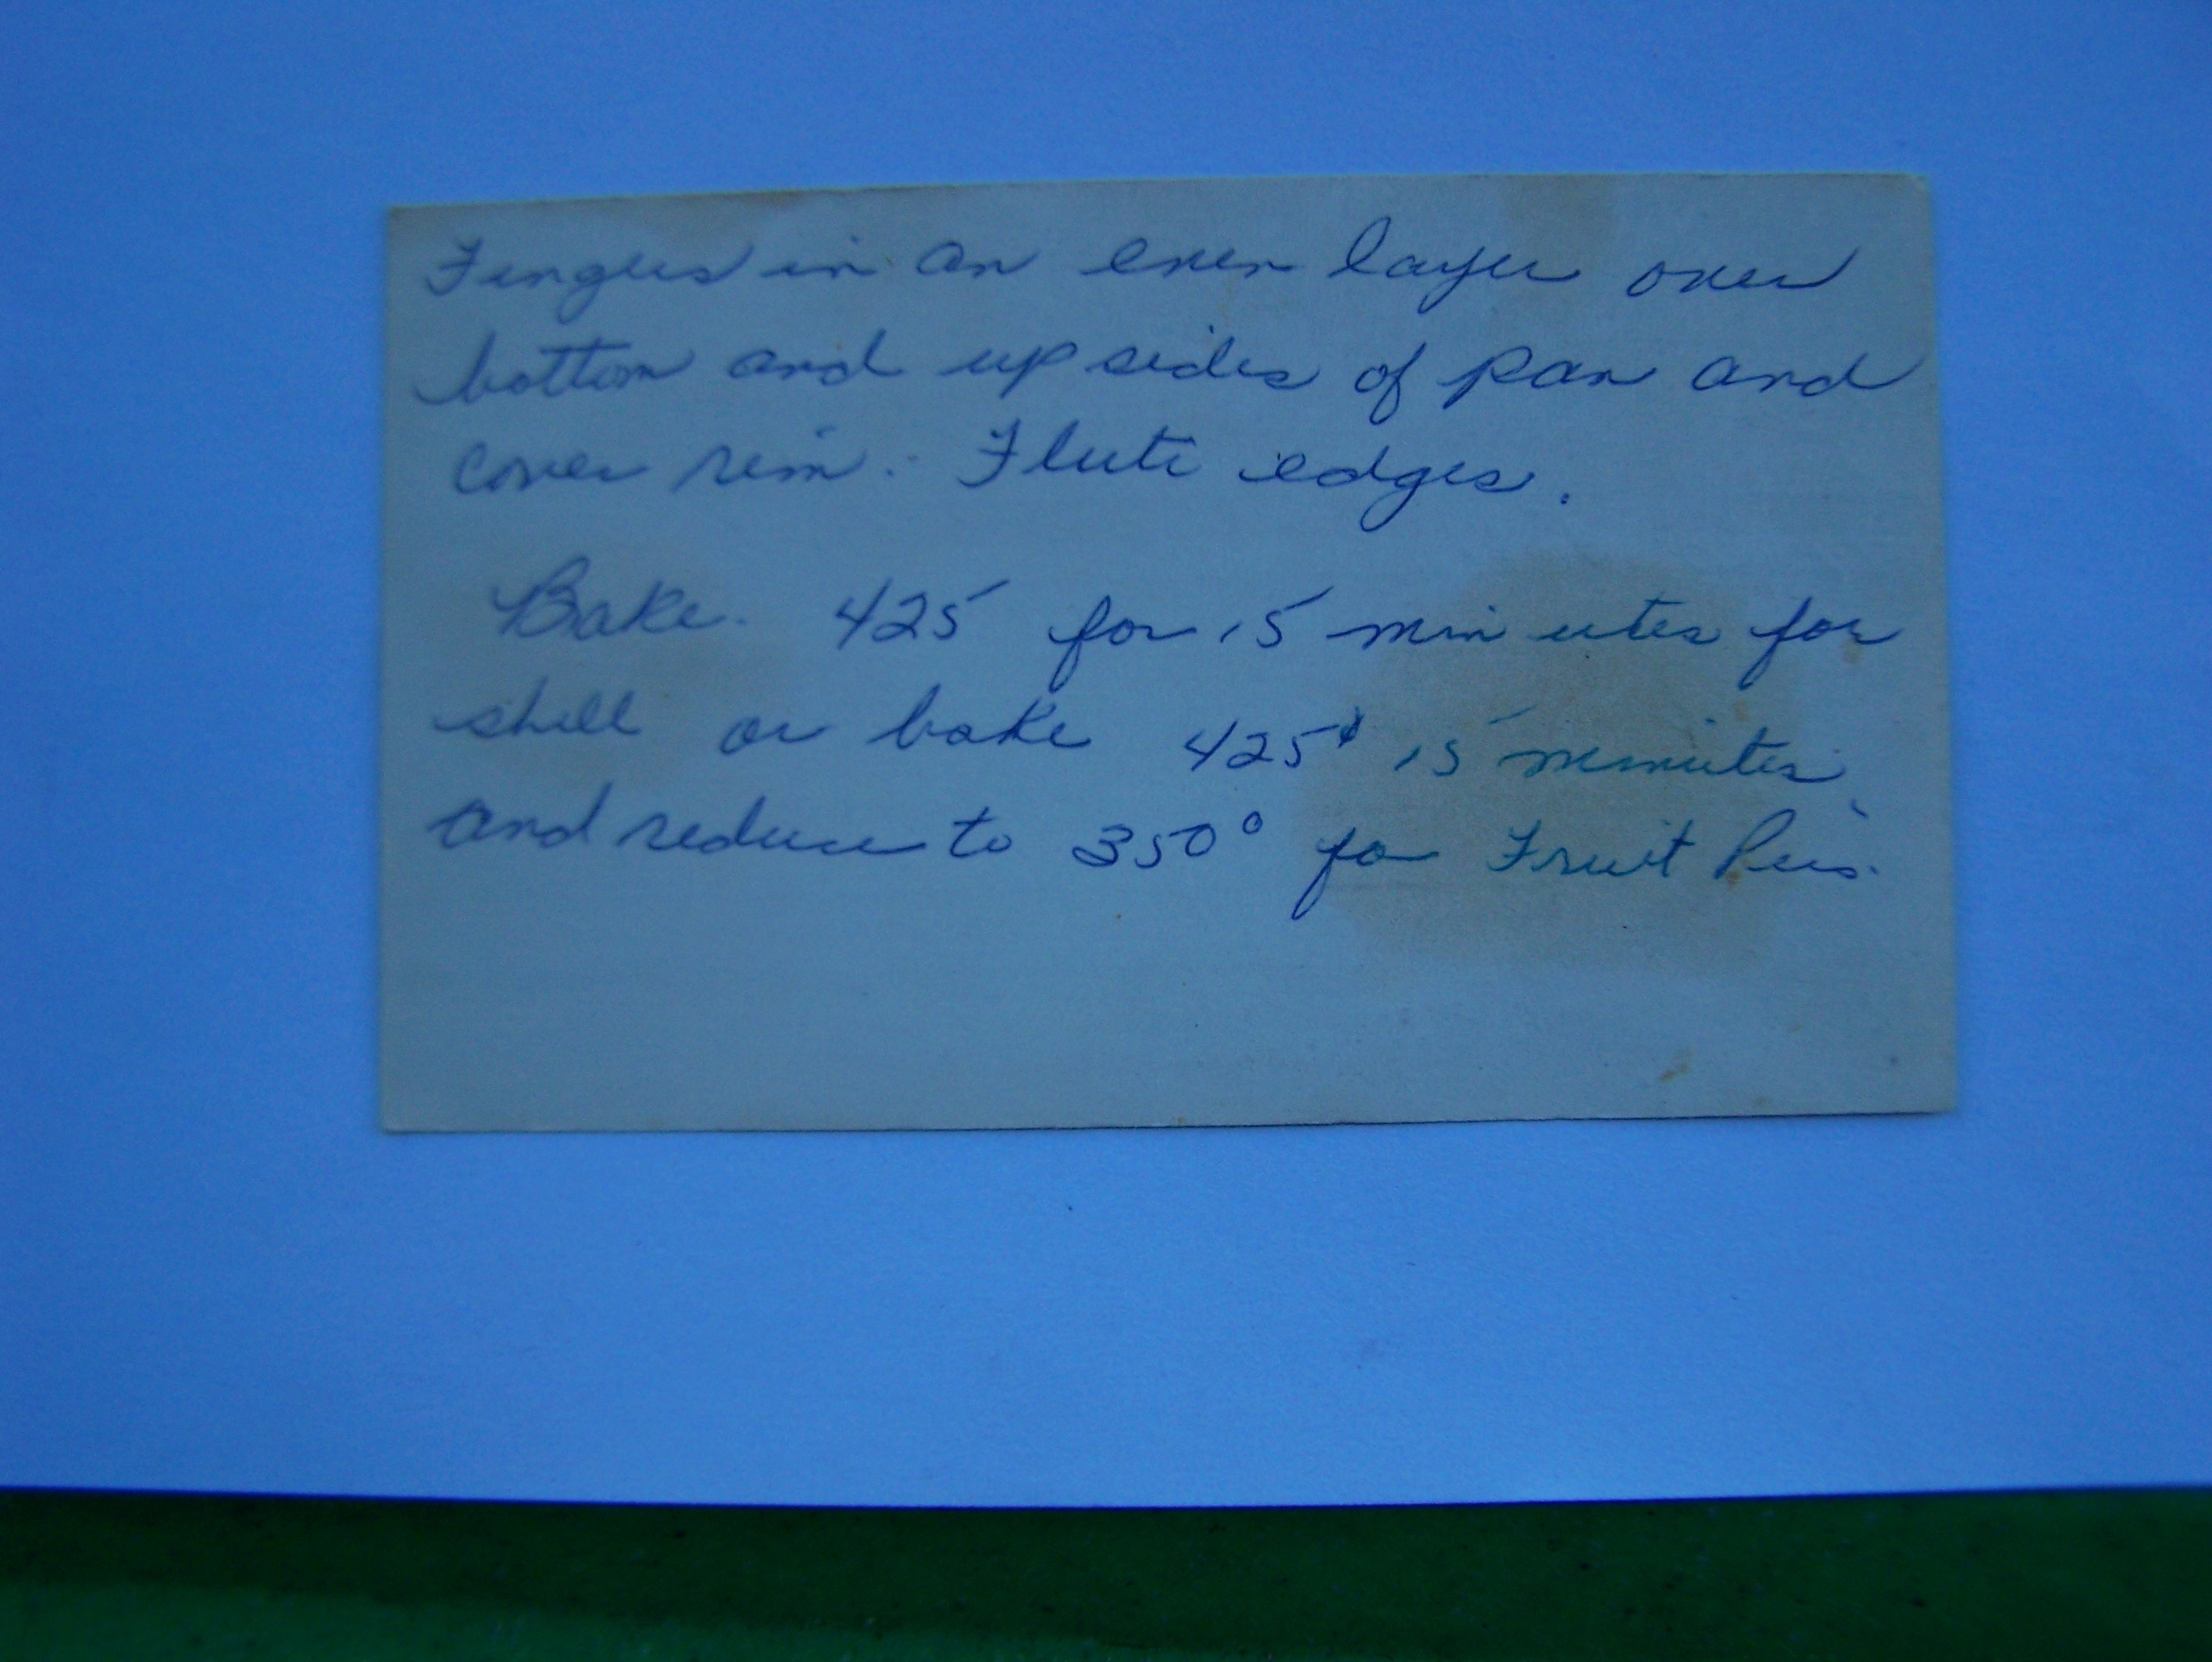 Fingers in an even layer over
bottom and up sides of pan and
cover rim. Flute edges.
Bake. 425 for 15 minutes for
shell or bake 425° 15 minutes
and reduce to 350° for Fruit Pies.